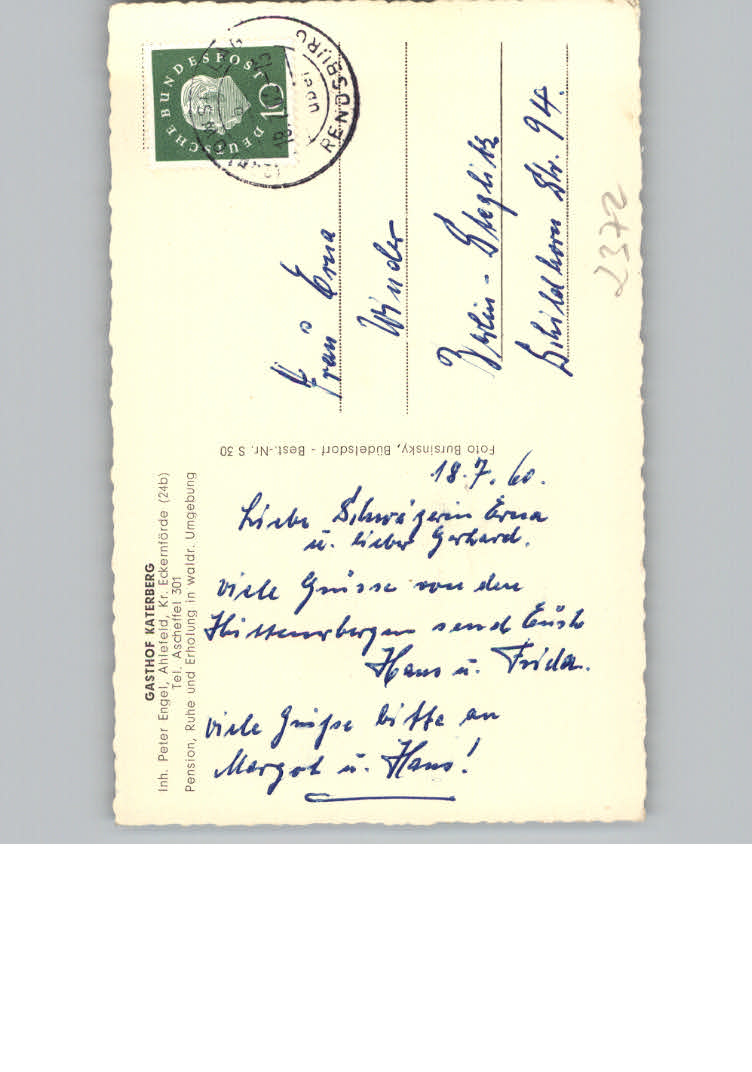 GASTHOF KATERBERG
Inh. Peter Engel, Ahlefeld, Kr. Eckernförde (24b)
Tel. Ascheffel 301
Pension, Ruhe und Erholung in waldr. Umgebung
18.7.60.
Liebe Schwägerin Erna
u. lieber Gerhard.
viele Grüsse von den
Hüttenerbergen send Euch
Hans u. Frida.
viele Grüße bitte an
Margot u. Hans!
Foto Bursinsky, Büdelsdorf - Best.-Nr. S 30
DEUTSCHE BUNDESPOST
10
RENDSBURG
Frau Erna
Winder
Berlin - Steglitz
Schildhorn Str. 94.
2372